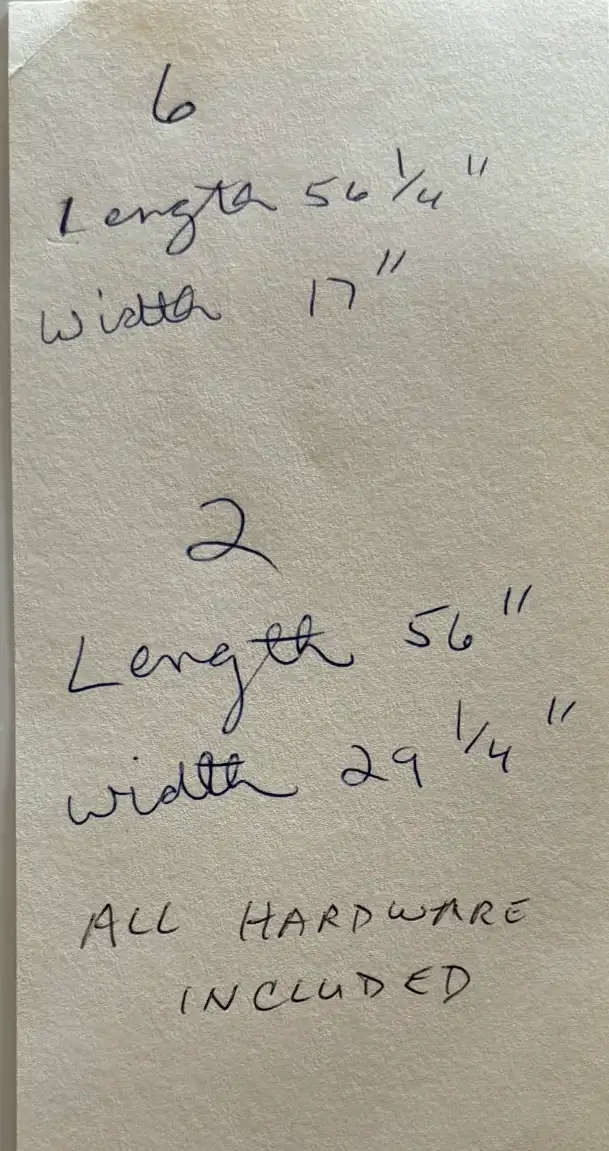 6
Length 56 1/4"
Width 17"
2
Length 56"
width 29 1/4"
ALL HARDWARE
INCLUDED